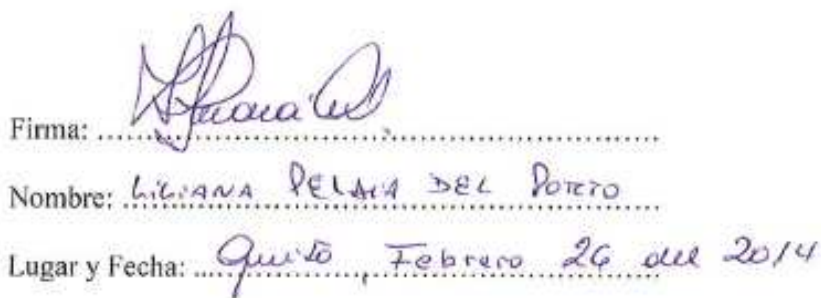 Firma:
Nombre: LILIANA DEL
Lugar y Fecha: Quito, Febrero 26 del 2014